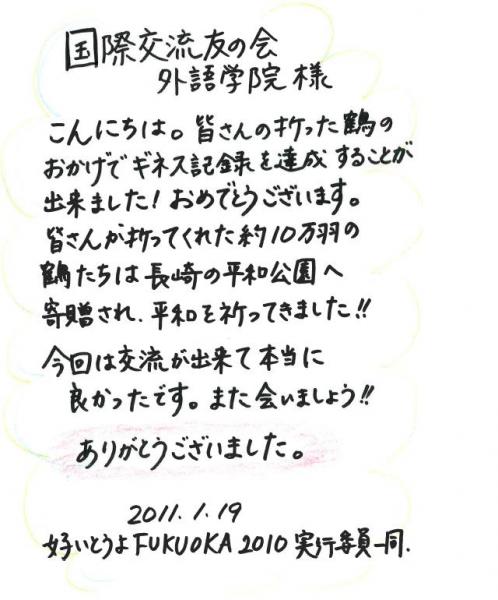 国際交流友の会
外語学院 様
こんにちは。皆さんの折った鶴の
おかげでギネス記録を達成することが
出来ました!おめでとうございます。
皆さんが折ってくれた約10万羽の
鶴たちは長崎の平和公園へ
寄贈され、平和を祈ってきました!!
今回は交流が出来て本当に
良かったです。また会いましょう!!
ありがとうございました。
2011.1.19
好いとうよFUKUOKA2010実行委員一同.